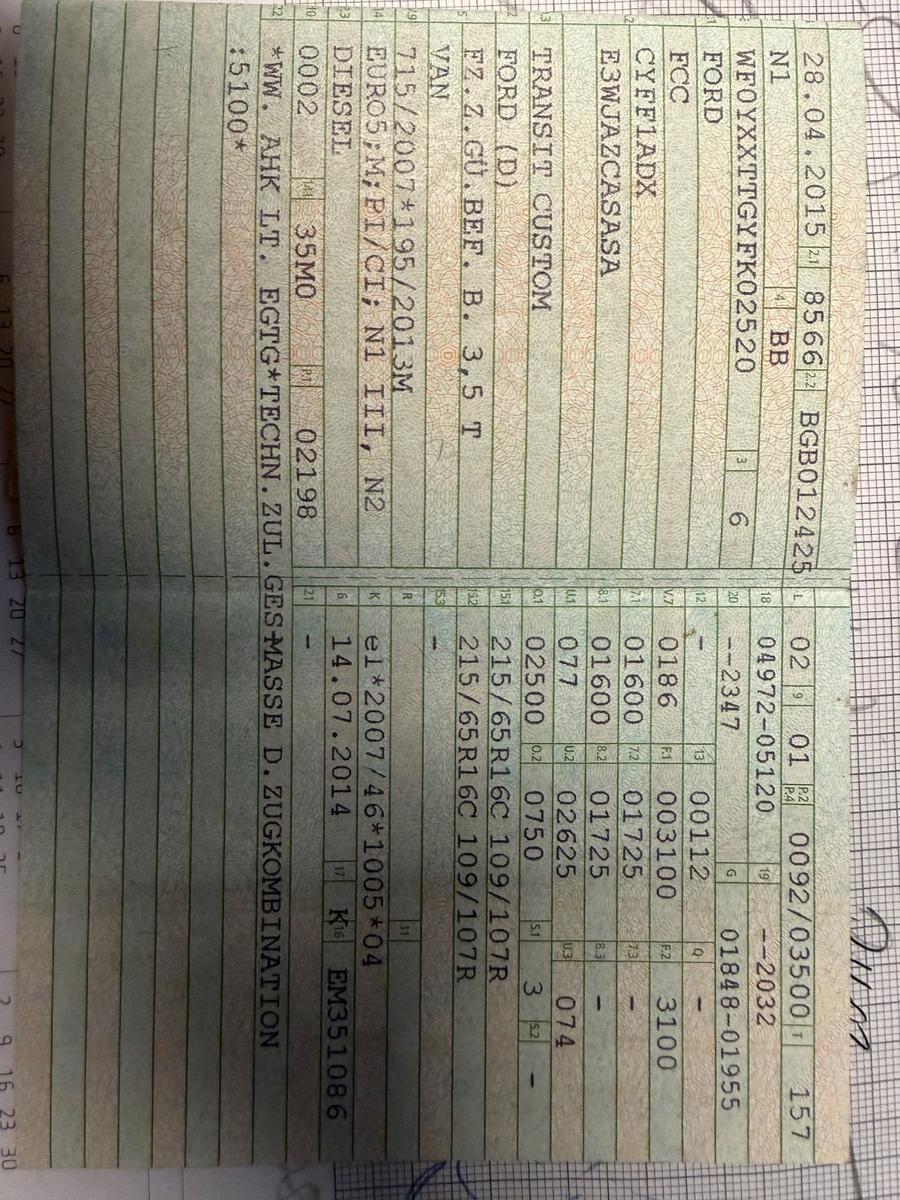 28.04.2015 2.1 8566 2.2 BGB012425
N1 4 BB
WF0YXXTTGYFK02520 3 6
FORD
FCC
CYFF1ADX
E3WJAZCASASA
TRANSIT CUSTOM
FORD (D)
FZ.Z.GÜ.BEF. B. 3,5 T
VAN
715/2007*195/2013M
EURO5;M;PI/CI; N1 III, N2
DIESEL
10 0002 14.1 35M0 P.1 02198
22 *WW. AHK LT. EGTG*TECHN.ZUL.GES-MASSE D.ZUGKOMBINATION
:5100*
L 02 9 01 P.2 P.4 0092/03500 T 157
18 04972-05120 19 --2032
20 --2347 G 01848-01955
12 - 13 00112 Q -
V.7 0186 F.1 003100 F.2 3100
7.1 01600 7.2 01725 7.3 -
8.1 01600 8.2 01725 8.3 -
U.1 077 U.2 02625 U.3 074
O.1 02500 O.2 0750 S.1 3 S.2 -
15.1 215/65R16C 109/107R
15.2 215/65R16C 109/107R
15.3 -
R 11
K e1*2007/46*1005*04
6 14.07.2014 17 K 16 EM351086
21 -